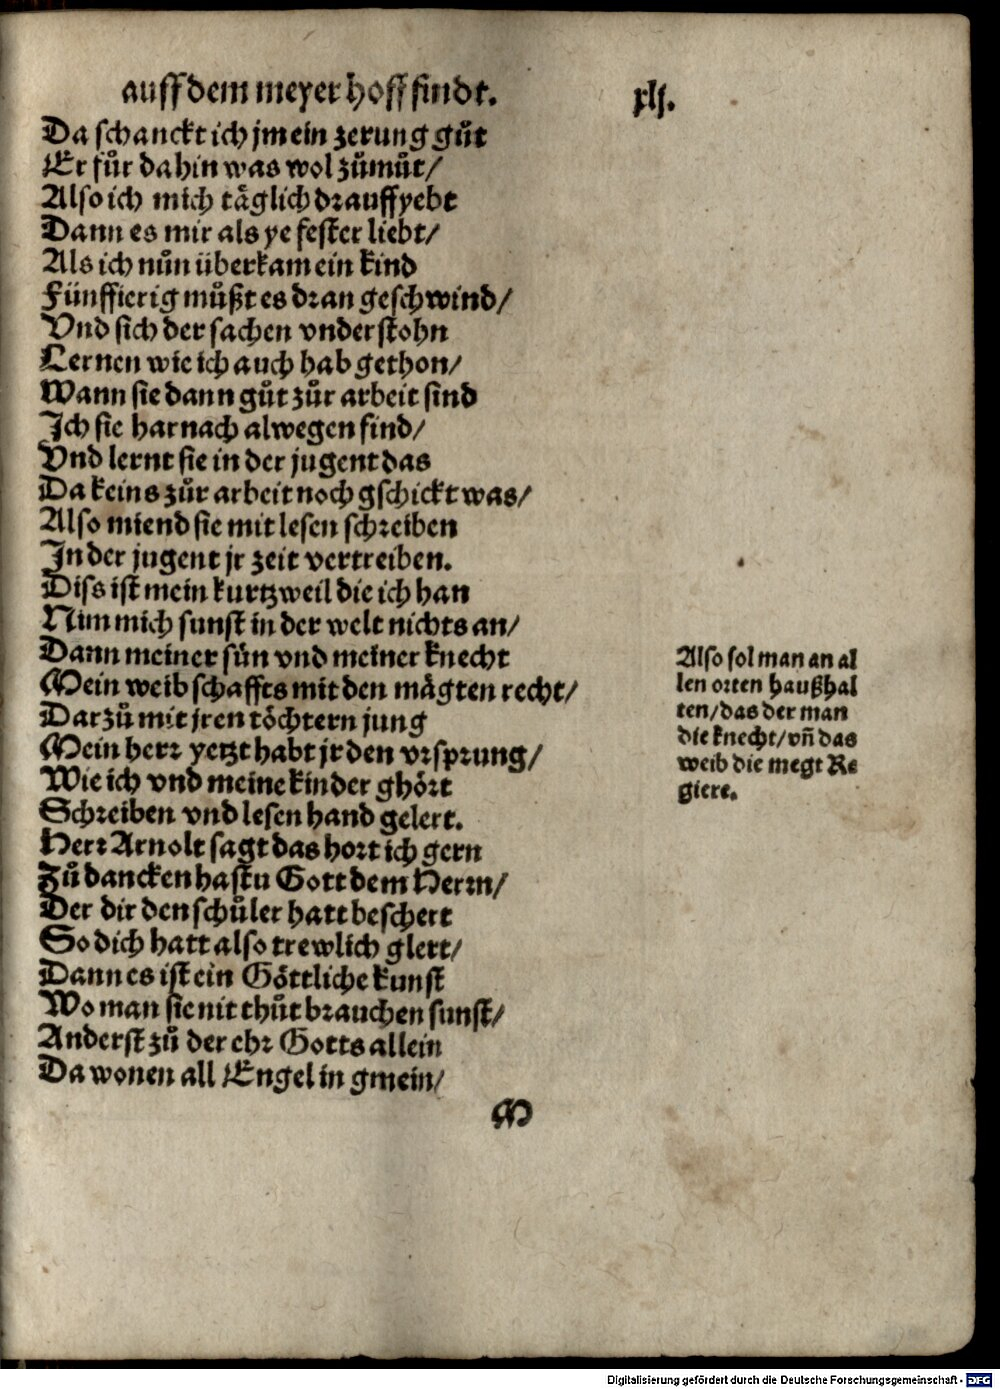 auff dem meyer hoff findt. xlj.
Da schanckt ich jm ein zerung gůt
Er fůr dahin was wol zůmůt/
Also ich mich täglich drauff yebt
Dann es mir als ye fester liebt/
Als ich nůn überkam ein kind
Fünffierig můßt es dran geschwind/
Vnd sich der sachen vnderstohn
Lernen wie ich auch hab gethon/
Wann sie dann gůt zůr arbeit sind
Ich sie harnach alwegen find/
Vnd lernt sie in der jugent das
Da keins zůr arbeit noch gschickt was/
Also miend sie mit lesen schreiben
In der jugent jr zeit vertreiben.
Diss ist mein kurtzweil die ich han
Nim mich sunst in der welt nichts an/
Dann meiner sün vnd meiner knecht
Mein weib schaffts mit den mägten recht/
Darzů mit jren töchtern jung
Mein herr yetzt habt jr den vrsprung/
Wie ich vnd meine kinder ghört
Schreiben vnd lesen hand gelert.
Herr Arnolt sagt das hort ich gern
Zů dancken hastu Gott dem Herrn/
Der dir den schůler hatt beschert
So dich hatt also trewlich glert/
Dann es ist ein Göttliche kunst
Wo man sie nit thůt brauchen sunst/
Anderst zů der ehr Gotts allein
Da wonen all Engel in gmein/
M
Also sol man an al
len orten haußhal
ten/das der man
die knecht/vñ das
weib die megt Re
giere.
Digitalisierung gefördert durch die Deutsche Forschungsgemeinschaft - DFG